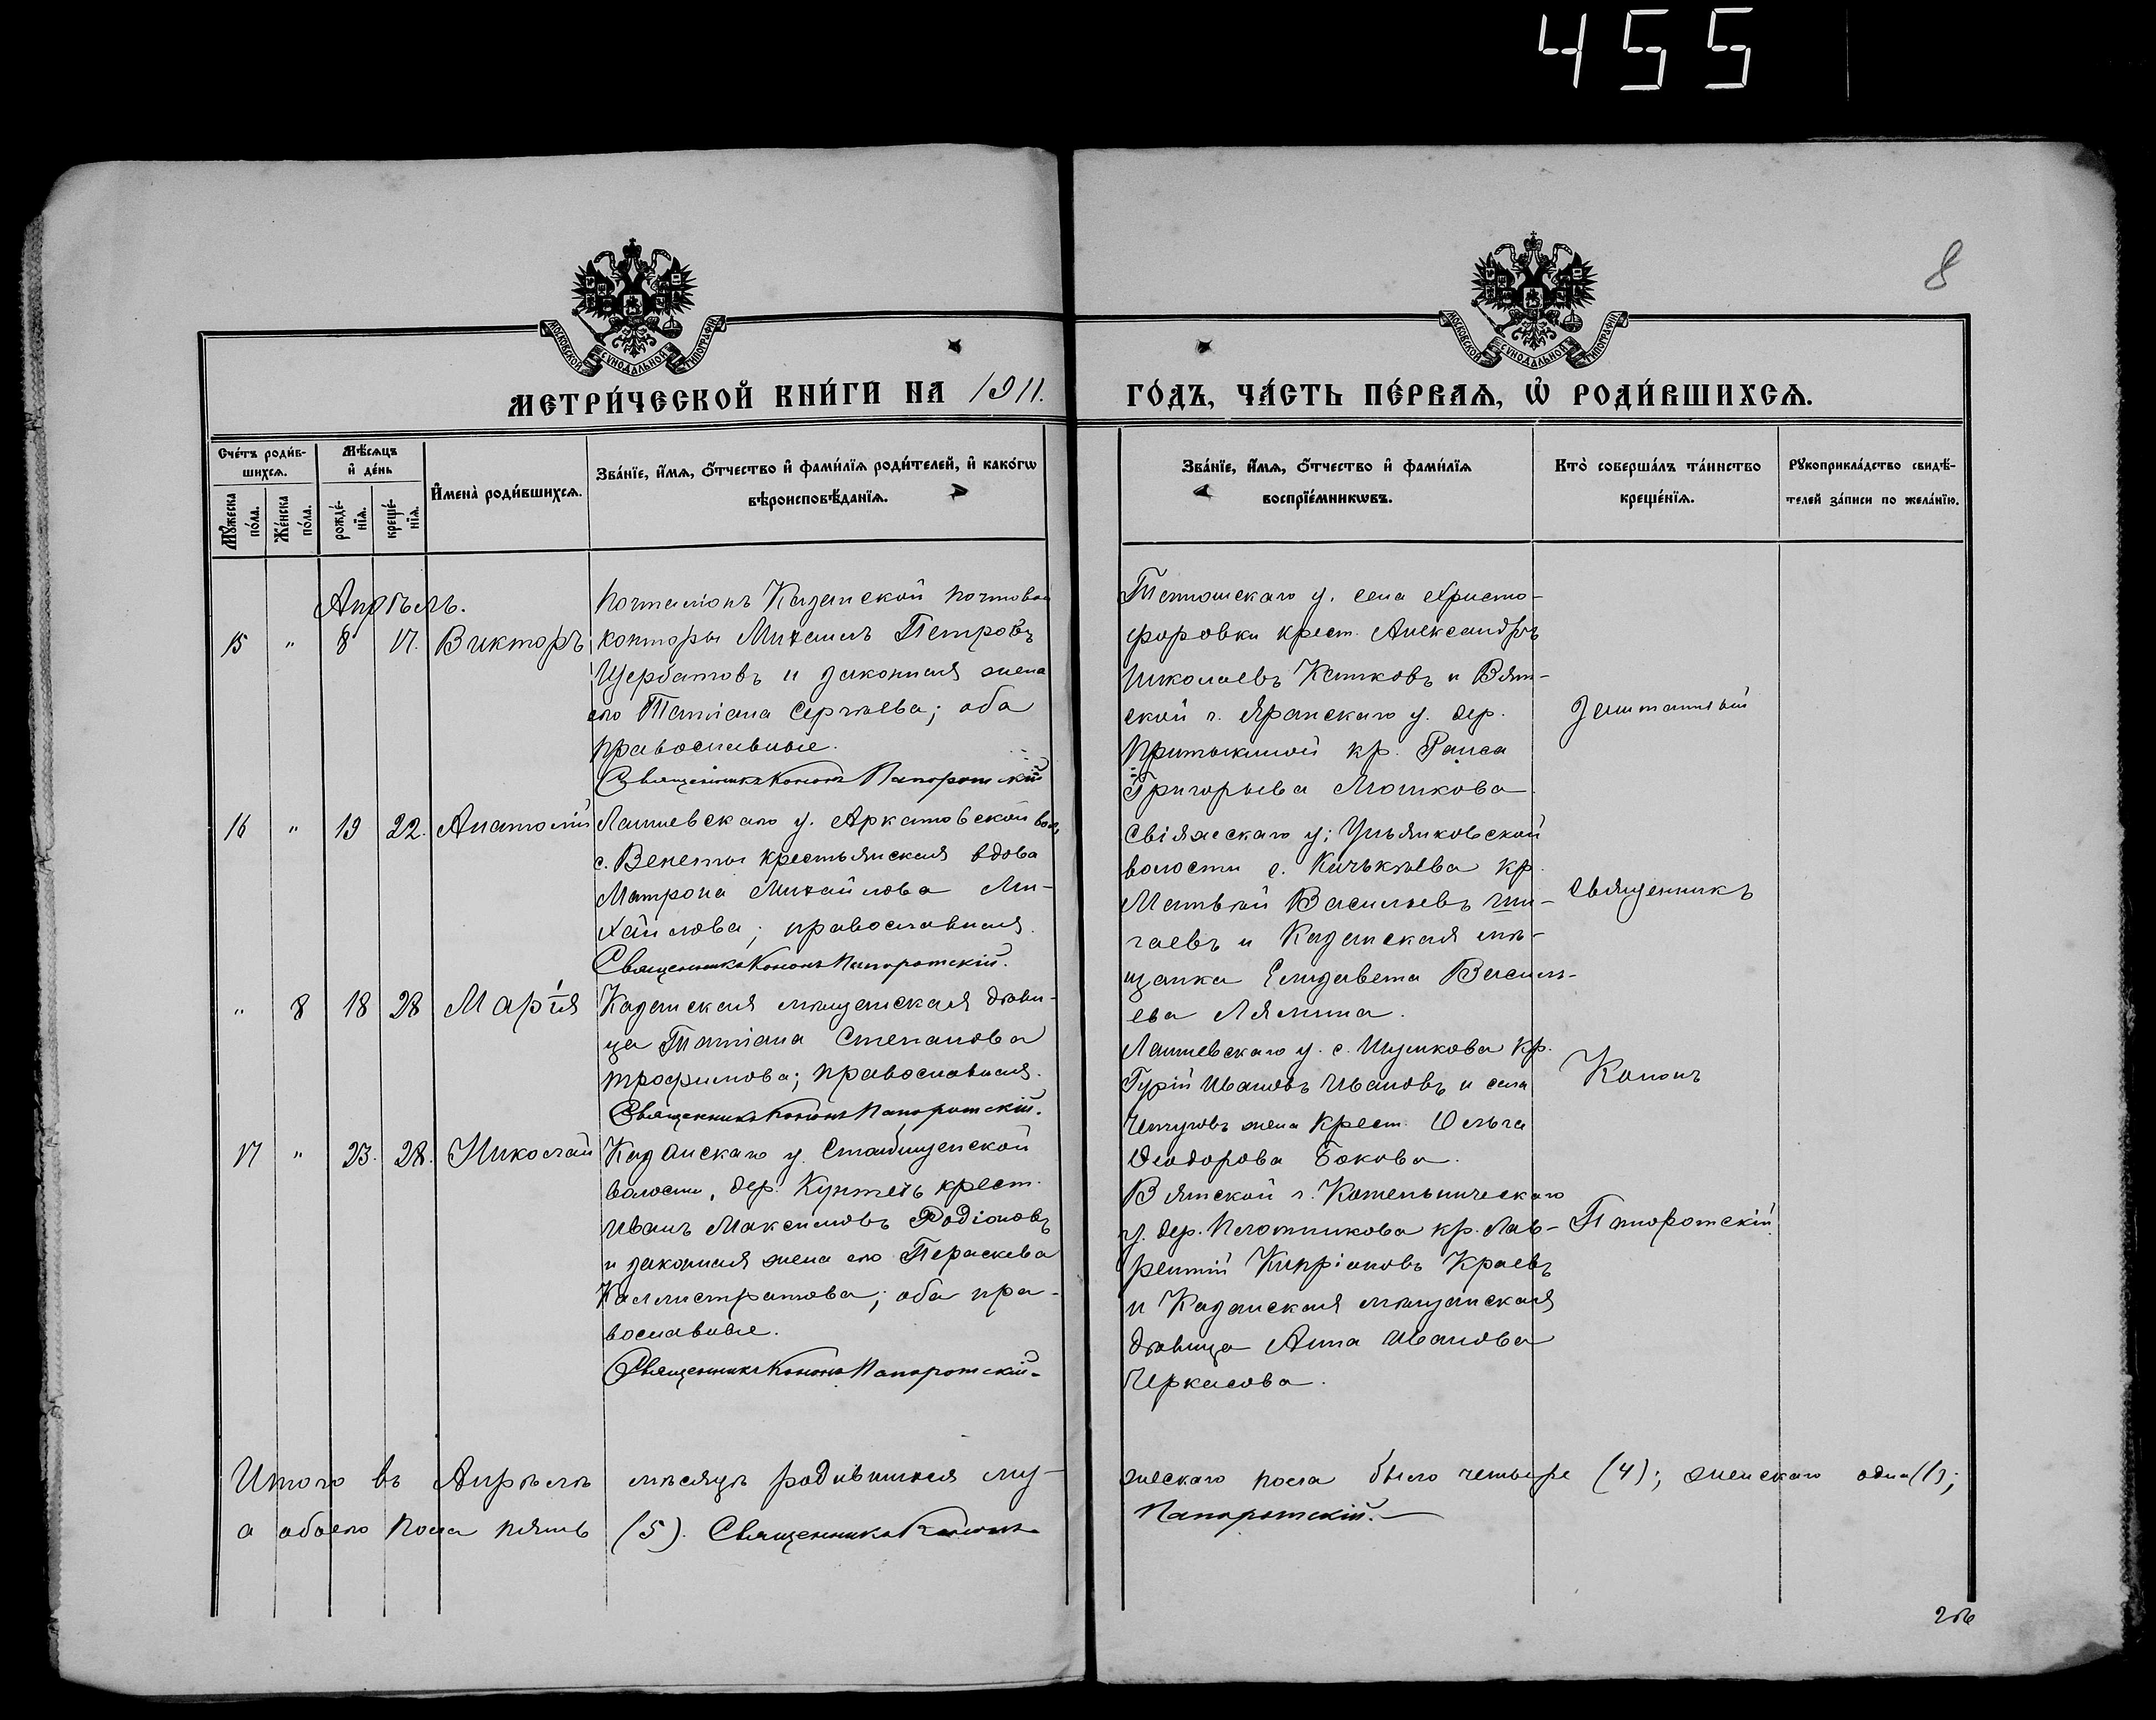 455
8
МОСКОВСКОЙ СУНОДАЛЬНОЙ ТИПОГРАФІИ
МОСКОВСКОЙ СУНОДАЛЬНОЙ ТИПОГРАФІИ
МЕТРИ́ЧЕСКОЙ КНИ́ГИ НА 1911. ГО́ДЪ, ЧА́СТЬ ПЕ́РВАѦ, Ѡ҆ РОДИ́ВШИХСѦ.
Сче́тъ роди́в-
шихсѧ.
Мꙋ́жеска по́ла.
Же́нска по́ла.
Мѣ́сѧцъ
и҆ де́нь
рожде́-нїѧ.
креще́-нїѧ.
И҆мена̀ роди́вшихсѧ.
Зва́нїе, и҆́мѧ, ѻ҆́тчество и҆ фами́лїѧ роди́телей, и҆ како́гѡ
вѣроисповѣ́данїѧ.
Зва́нїе, и҆́мѧ, ѻ҆́тчество и҆ фами́лїѧ
воспрїе́мникѡвъ.
Кто̀ соверша́лъ та́инство
креще́нїѧ.
Рꙋкоприкла́дство свидѣ́-
телей за́писи по жела́нїю.
Апрѣль.
15 " 8 17. Викторъ
Почталіонъ Казанской почтовой
конторы Михаилъ Петровъ
Щербатовъ и законная жена
его Татіана Сергѣева; оба
православные.
Священникъ Кононъ Папоротскій
Тетюшскаго у. села Христо-
форовки крест. Александръ
Николаевъ Катковъ и Вят-
ской г. Яранскаго у. дер.
Притыкиной кр. Раиса
Григорьева Мошкова
16 " 19 22. Анатолій
Лаишевскаго у. Аркатовской вол.
с. Венеты крестьянская вдова
Матрона Михайлова Ми-
хайлова; православная.
Священникъ Кононъ Папоротскій.
Свіяжскаго у; Ульянковской
волости с. Кичькѣева кр.
Матвѣй Васильевъ Чи-
гаевъ и Казанская мѣ-
щанка Елизавета Василь-
ева Лямина.
" 8 18 28 Марія
Казанская мѣщанская дѣви-
ца Татіана Степанова
Трофимова; православная.
Священникъ Кононъ Папоротскій.
Лаишевскаго у. с. Шумкова кр.
Гурій Ивановъ Ивановъ и села
жена крест. Ольга
Ѳеодорова Бокова.
17 " 23. 28. Николай
Казанскаго у. Столбищенской
волости, дер. крест.
Иванъ Максимовъ Родіоновъ
и законная жена его Параскева
Каллистратова; оба пра-
вославные.
Священникъ Кононъ Папоротскій.
Вятской г. Котельническаго
у. дер. Плотникова кр. Лав-
рентій Кипріановъ Краевъ
и Казанская мѣщанская
дѣвица Анна Иванова
Черкасова.
Заштатный
Священникъ
Кононъ
Папоротскій.
Итого въ Апрѣлѣ мѣсяцѣ родившихся му-
жескаго пола было четыре (4); женскаго одна (1);
а обоего пола пять (5). Священникъ Кононъ
Папоротскій.